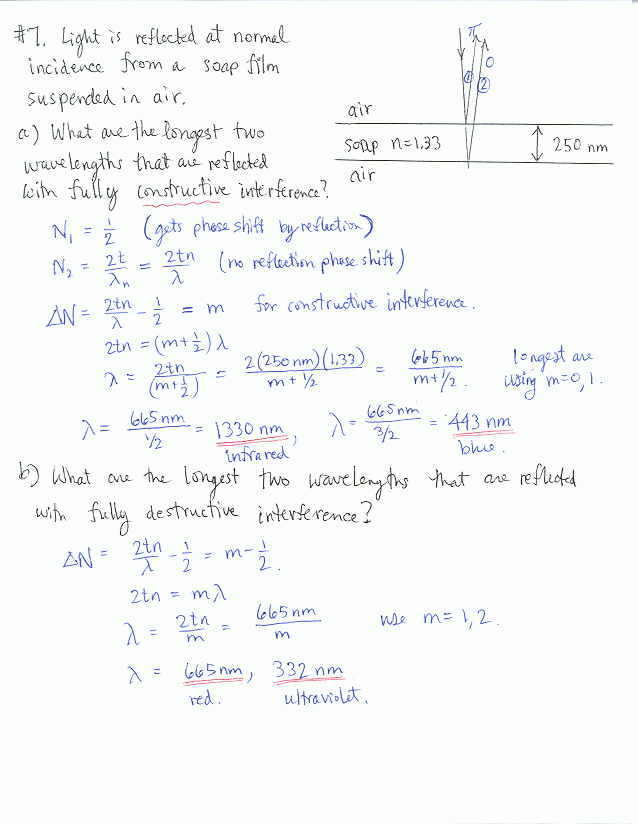 #7. Light is reflected at normal
incidence from a soap film
suspended in air.
π
0
① ②
air
soap n=1.33
250 nm
air
a) What are the longest two
wavelengths that are reflected
with fully constructive interference?
N₁ = 1/2 (gets phase shift by reflection)
N₂ = 2t/λₙ = 2tn/λ (no reflection phase shift)
ΔN = 2tn/λ - 1/2 = m for constructive interference.
2tn = (m+1/2)λ
λ = 2tn/(m+1/2) = 2(250nm)(1.33)/m+1/2 = 665nm/m+1/2. longest are
using m=0,1.
λ = 665nm/1/2 = 1330 nm, λ = 665nm/3/2 = 443 nm
infrared blue.
b) What are the longest two wavelengths that are reflected
with fully destructive interference?
ΔN = 2tn/λ - 1/2 = m - 1/2.
2tn = mλ
λ = 2tn/m = 665nm/m use m=1,2.
λ = 665nm, 332 nm
red. ultraviolet.